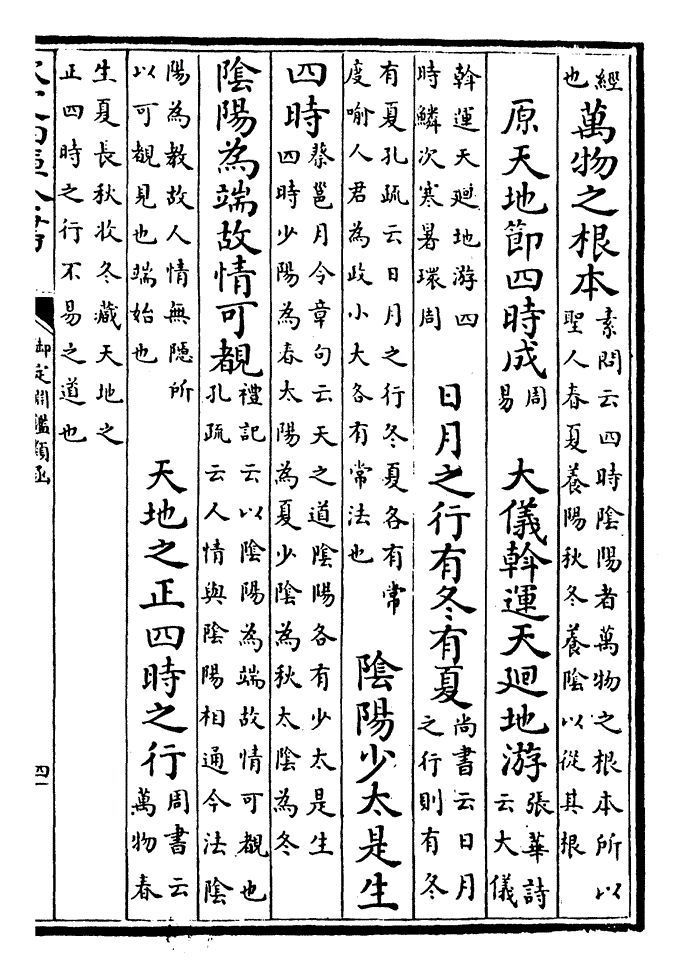 經
也
萬物之根本
素問云四時陰陽者萬物之根本所以
聖人春夏養陽秋冬養陰以從其根
原天地節四時成
周
易
大儀斡運天廻地游
張華詩
云大儀
斡運天廻地游四
時鱗次寒暑環周
日月之行有冬有夏
尚書云日月
之行則有冬
有夏孔疏云日月之行冬夏各有常
度喻人君為政小大各有常法也
陰陽少太是生
四時
蔡邕月令章句云天之道陰陽各有少太是生
四時少陽為春太陽為夏少陰為秋太陰為冬
陰陽為端故情可覩
禮記云以陰陽為端故情可覩也
孔疏云人情與陰陽相通今法陰
陽為教故人情無隱所
以可覩見也端始也
天地之正四時之行
周書云
萬物春
生夏長秋收冬藏天地之
正四時之行不易之道也
御定淵鑑類函
四